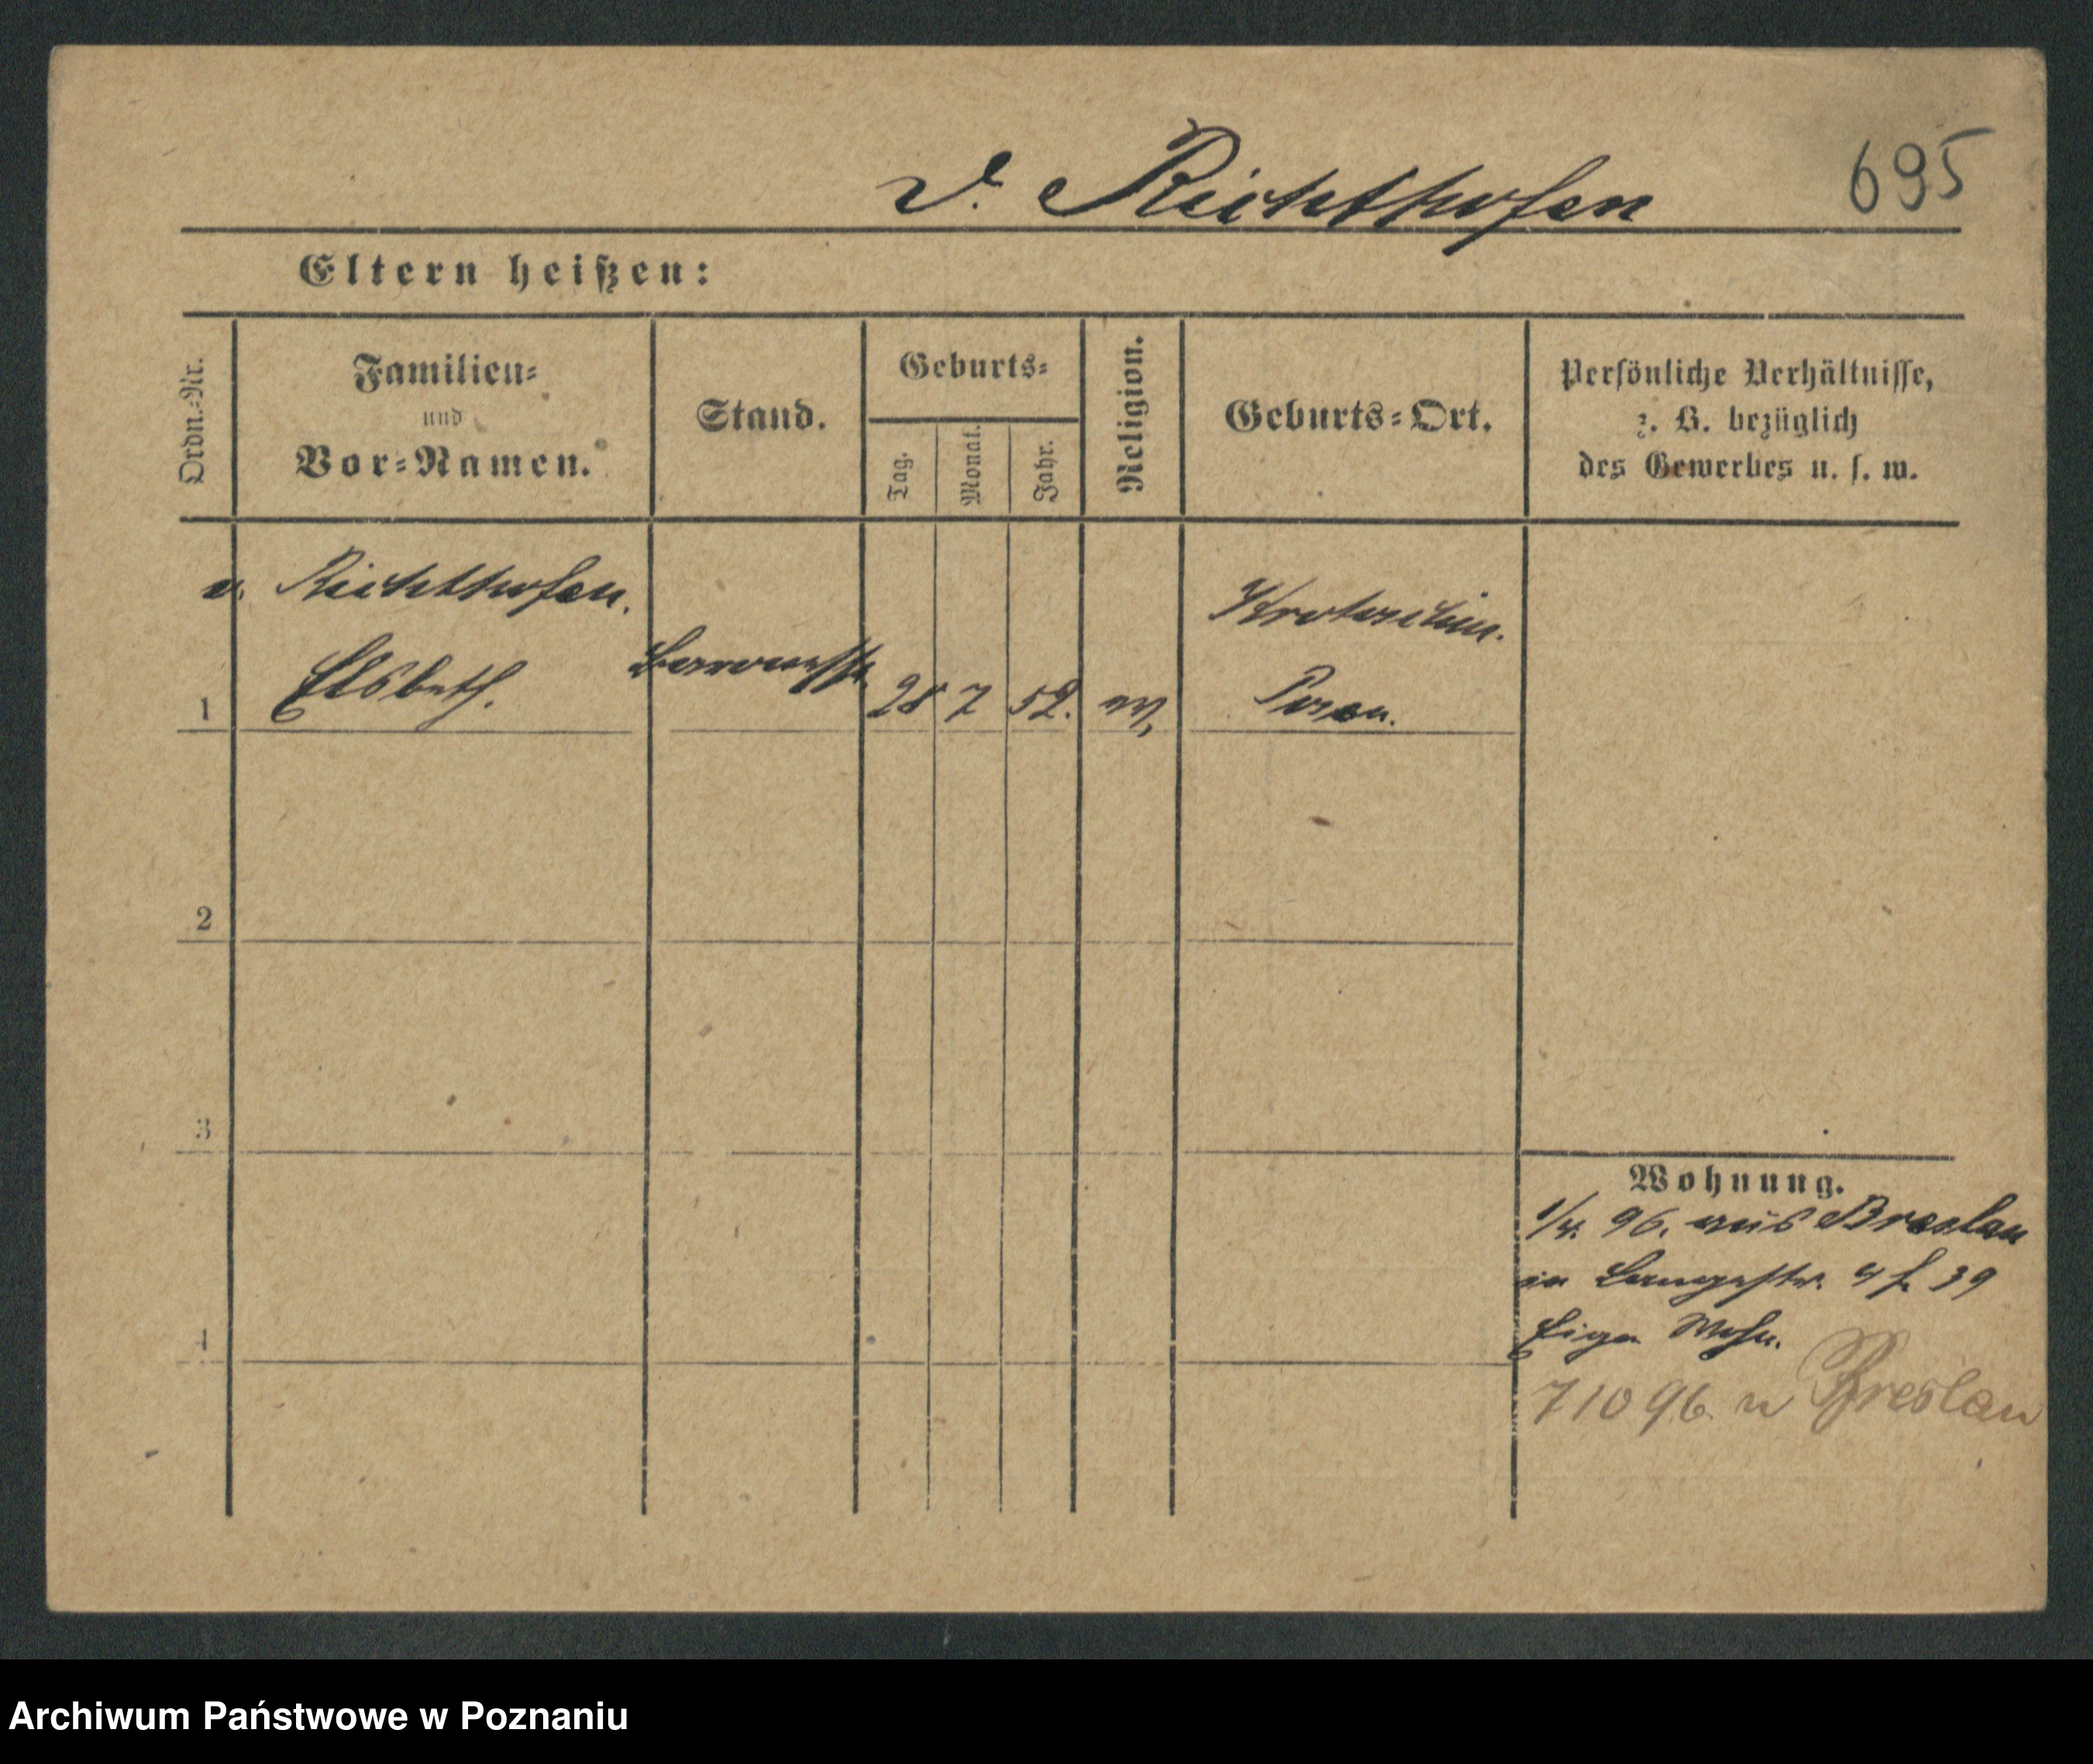 v. Richthofen
695
Eltern heißen:
Ordn.-Nr.
Familien-
und
Vor-Namen.
Stand.
Geburts-
Tag.
Monat.
Jahr.
Religion.
Geburts-Ort.
Persönliche Verhältnisse,
z. B. bezüglich
des Gewerbes u. s. w.
v. Richthofen.
Elsbeth.
1
28 7 52.
Krotoschin.
Posen.
2
3
4
Wohnung.
1/4. 96. aus Breslau
in Langestr. 4 b. 39
Eigen Wohn.
7 10 96 n Breslau
Archiwum Państwowe w Poznaniu